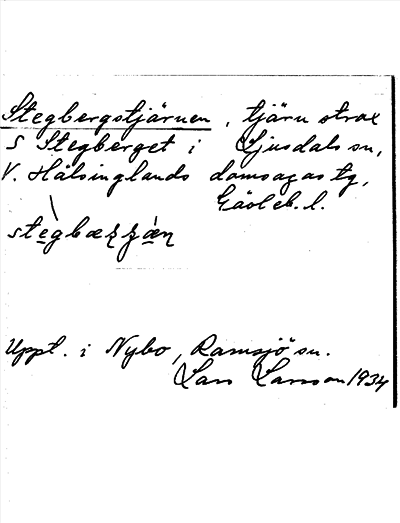 Stegbergstjärnen, tjärn strax
S Stegberget i Ljusdals sn,
V. Hälsinglands domsagas tg,
Gävleb. l.
Uppt. i Nybo, Ramsjö sn.
Lars Larsson 1934